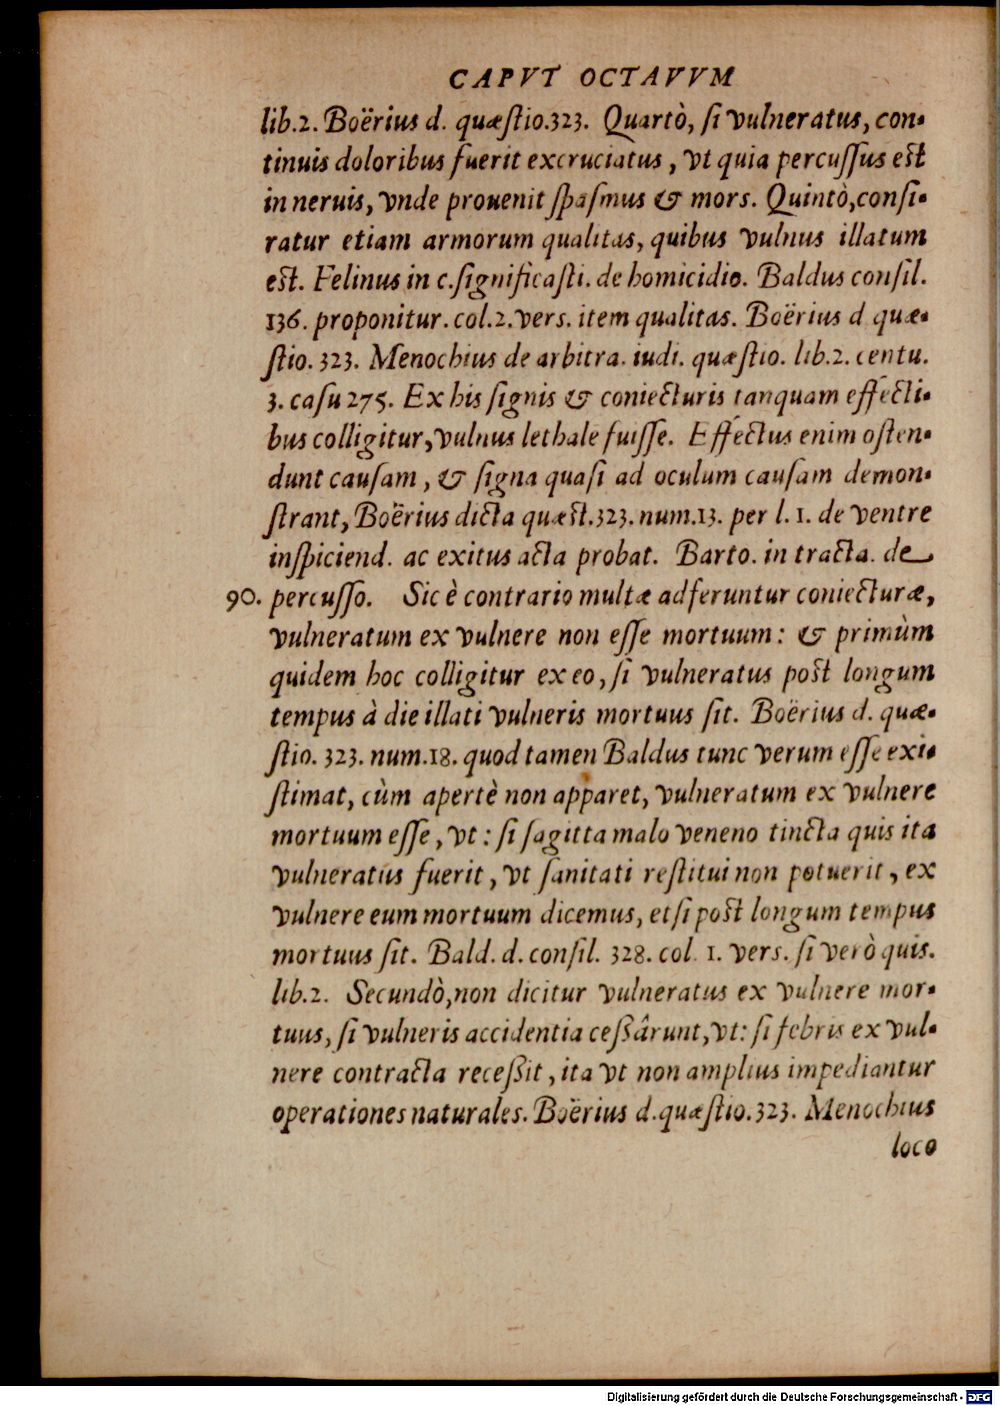 CAPVT OCTAVVM
lib.2. Boërius d. quæstio.323. Quartò, si vulneratus, con-
tinuis doloribus fuerit excruciatus, vt quia percussus est
in neruis, vnde prouenit spasmus & mors. Quintò, consi-
ratur etiam armorum qualitas, quibus vulnus illatum
est. Felinus in c. significasti. de homicidio. Baldus consil.
136. proponitur. col.2. vers. item qualitas. Boërius d quæ-
stio. 323. Menochius de arbitra. iudi. quæstio. lib.2. centu.
3. casu 275. Ex his signis & coniecturis tanquam effecti-
bus colligitur, vulnus lethale fuisse. Effectus enim osten-
dunt causam, & signa quasi ad oculum causam demon-
strant, Boërius dicta quæst.323. num.13. per l. 1. de ventre
inspiciend. ac exitus acta probat. Barto. in tracta. de
90. percusso. Sic è contrario multæ adferuntur coniecturæ,
vulneratum ex vulnere non esse mortuum: & primùm
quidem hoc colligitur ex eo, si vulneratus post longum
tempus à die illati vulneris mortuus sit. Boërius d. quæ-
stio. 323. num.18. quod tamen Baldus tunc verum esse exi-
stimat, cùm apertè non apparet, vulneratum ex vulnere
mortuum esse, vt: si sagitta malo veneno tincta quis ita
vulneratus fuerit, vt sanitati restitui non potuerit, ex
vulnere eum mortuum dicemus, etsi post longum tempus
mortuus sit. Bald. d. consil. 328. col. 1. vers. si verò quis.
lib.2. Secundò, non dicitur vulneratus ex vulnere mor-
tuus, si vulneris accidentia cessârunt, vt: si febris ex vul-
nere contracta recessit, ita vt non amplius impediantur
operationes naturales. Boërius d. quæstio.323. Menochius
loco
Digitalisierung gefördert durch die Deutsche Forschungsgemeinschaft - DFG